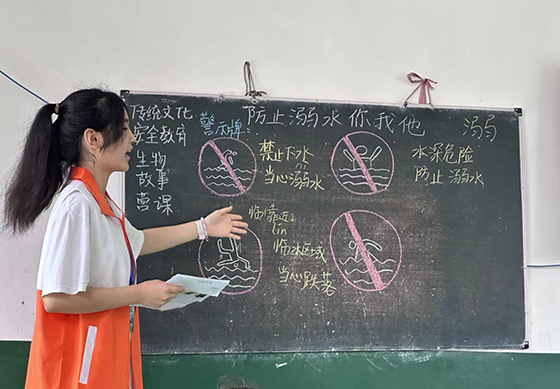 传统文化
安全教育
生物
故事
营课
警示牌
防止溺水你我他
溺
禁止下水
当心溺水
水深危险
防止溺水
临靠近
lin
临水区域
当心跌落